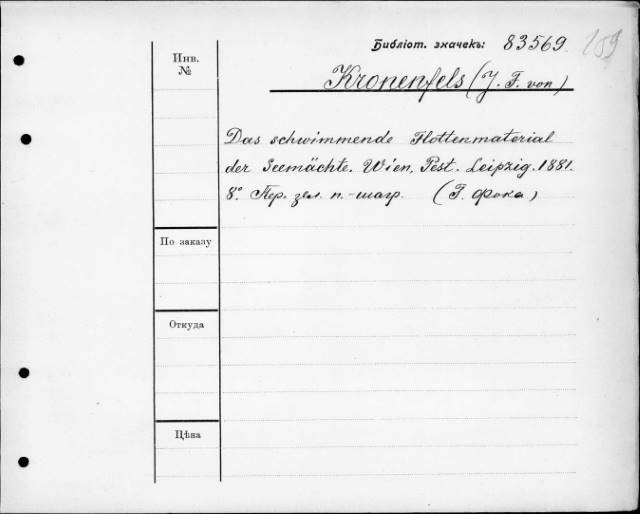 Библіот. значекъ: 83569. 159
Инв.
№
Kronenfels (J. F. von)
Das schwimmende Flottenmaterial
der Seemächte. Wien, Pest. Leipzig. 1881.
8º. Пер. зел. п.-шагр. (Г. Фока)
По заказу
Откуда
Цѣна